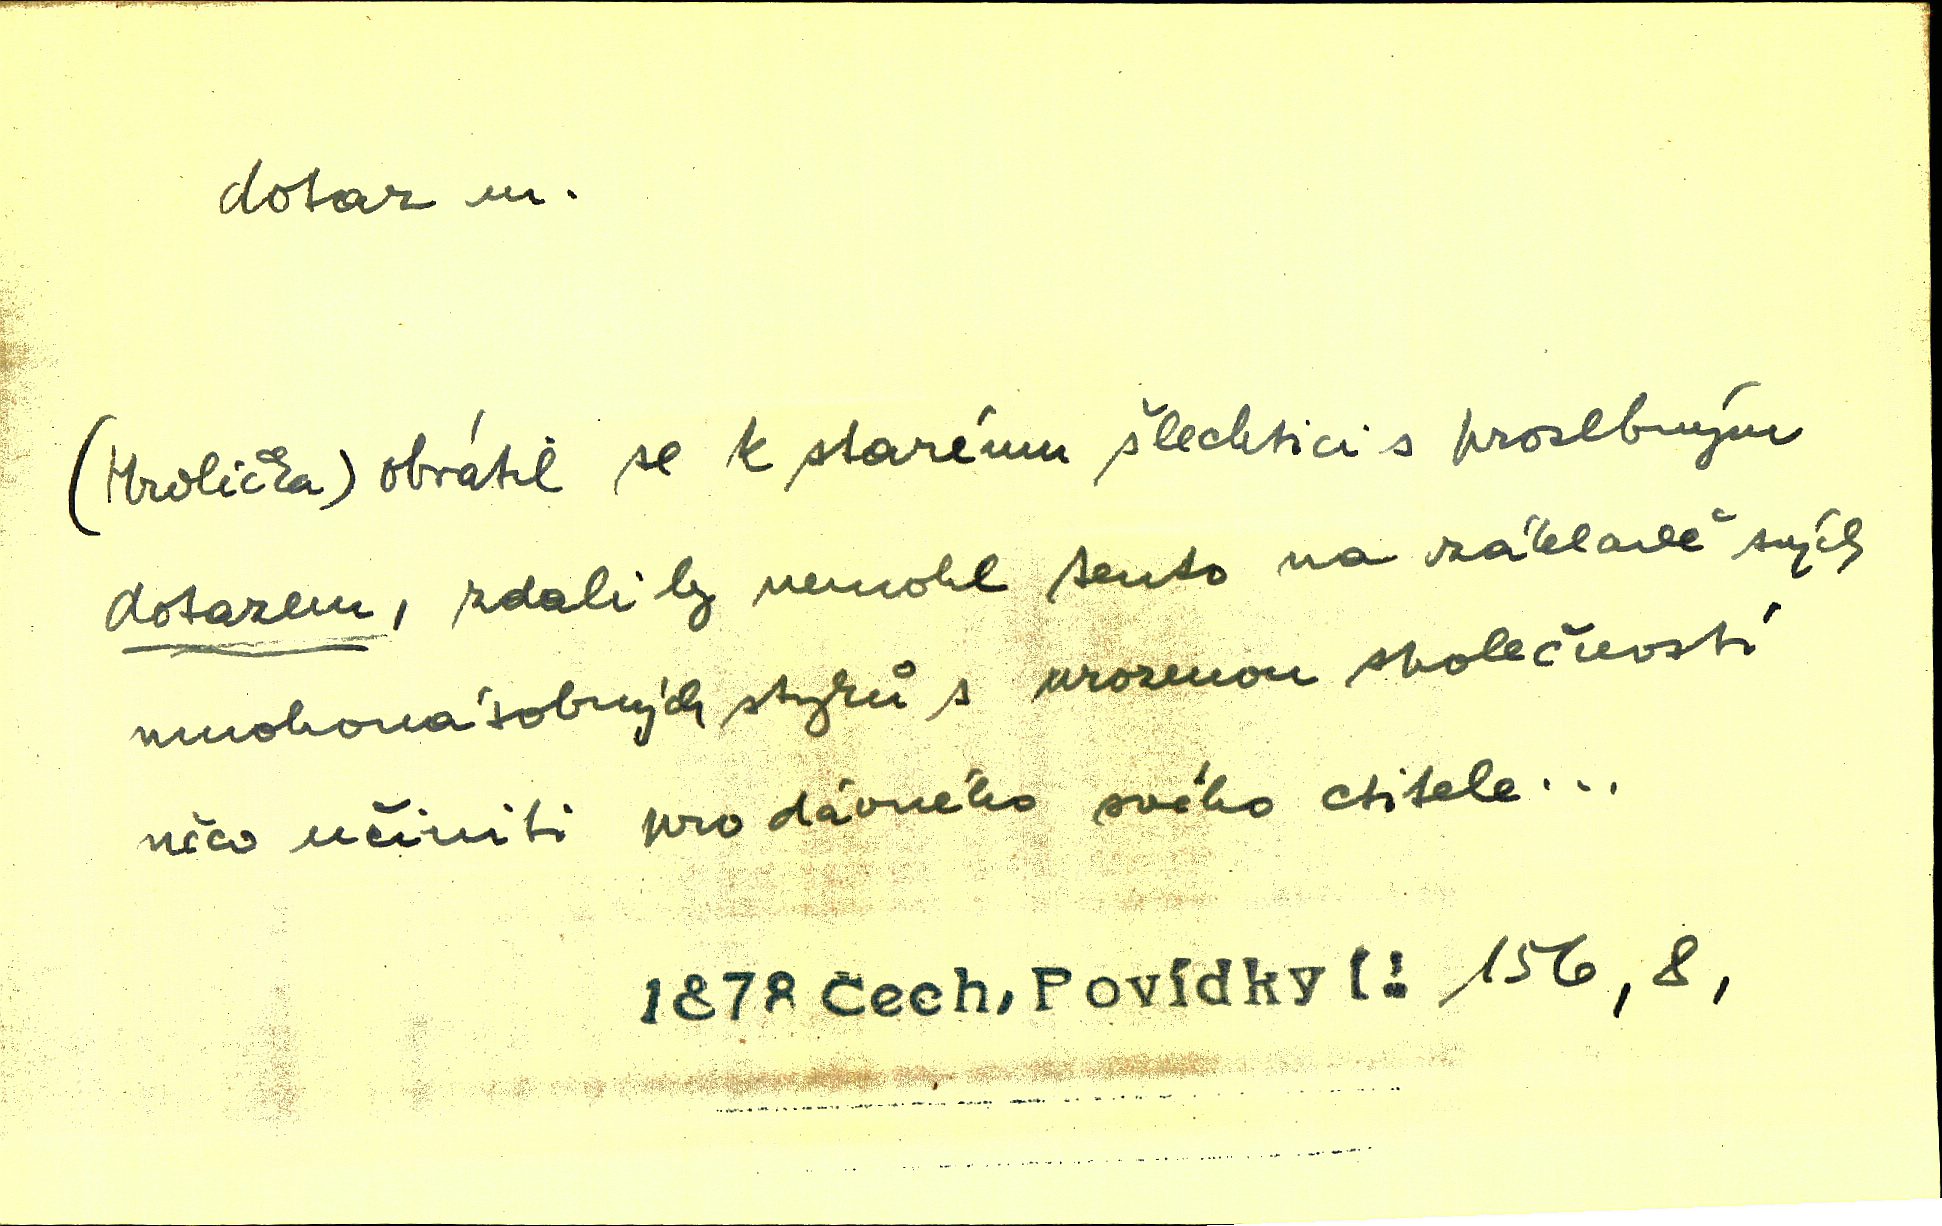 dotaz m.
(Hrdlička) obrátil se k starému šlechtici s prosebným
dotazem, zdali by nemohl tento na základě svých
mnohonásobných styků s urozenou společností
něco učiniti pro dávného svého ctitele...
1878 Čech, Povídky I! 156, 8,